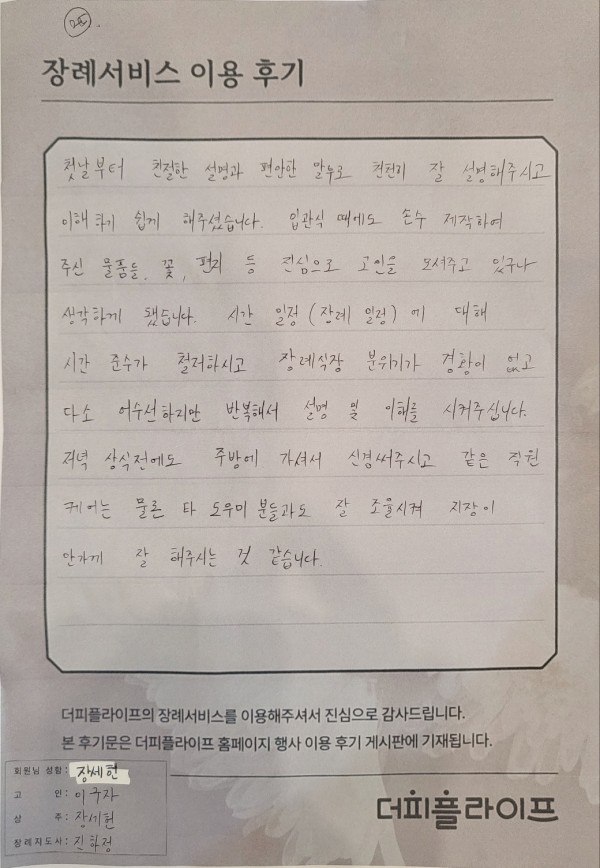 장례서비스 이용 후기
첫날부터 친절한 설명과 편안한 말투로 천천히 잘 설명해주시고
이해하기 쉽게 해주셨습니다. 입관식 때에도 손수 제작하여
주신 물품들, 꽃, 편지 등 진심으로 고인을 모셔주고 있구나
생각하게 됐습니다. 시간 일정(장례 일정)에 대해
시간 준수가 철저하시고 장례식장 분위기가 경황이 없고
다소 어수선하지만 반복해서 설명 및 이해를 시켜주십니다.
저녁 상식전에도 주방에 가셔서 신경써주시고 같은 직원
케어는 물론 타 도우미 분들과도 잘 조율시켜 지장이
안가게 잘 해주시는 것 같습니다.
더피플라이프의 장례서비스를 이용해주셔서 진심으로 감사드립니다.
본 후기문은 더피플라이프 홈페이지 행사 이용 후기 게시판에 기재됩니다.
회원님 성함: 장세헌
고 인: 이구자
상 주: 장세헌
장례지도사: 진하정
더피플라이프